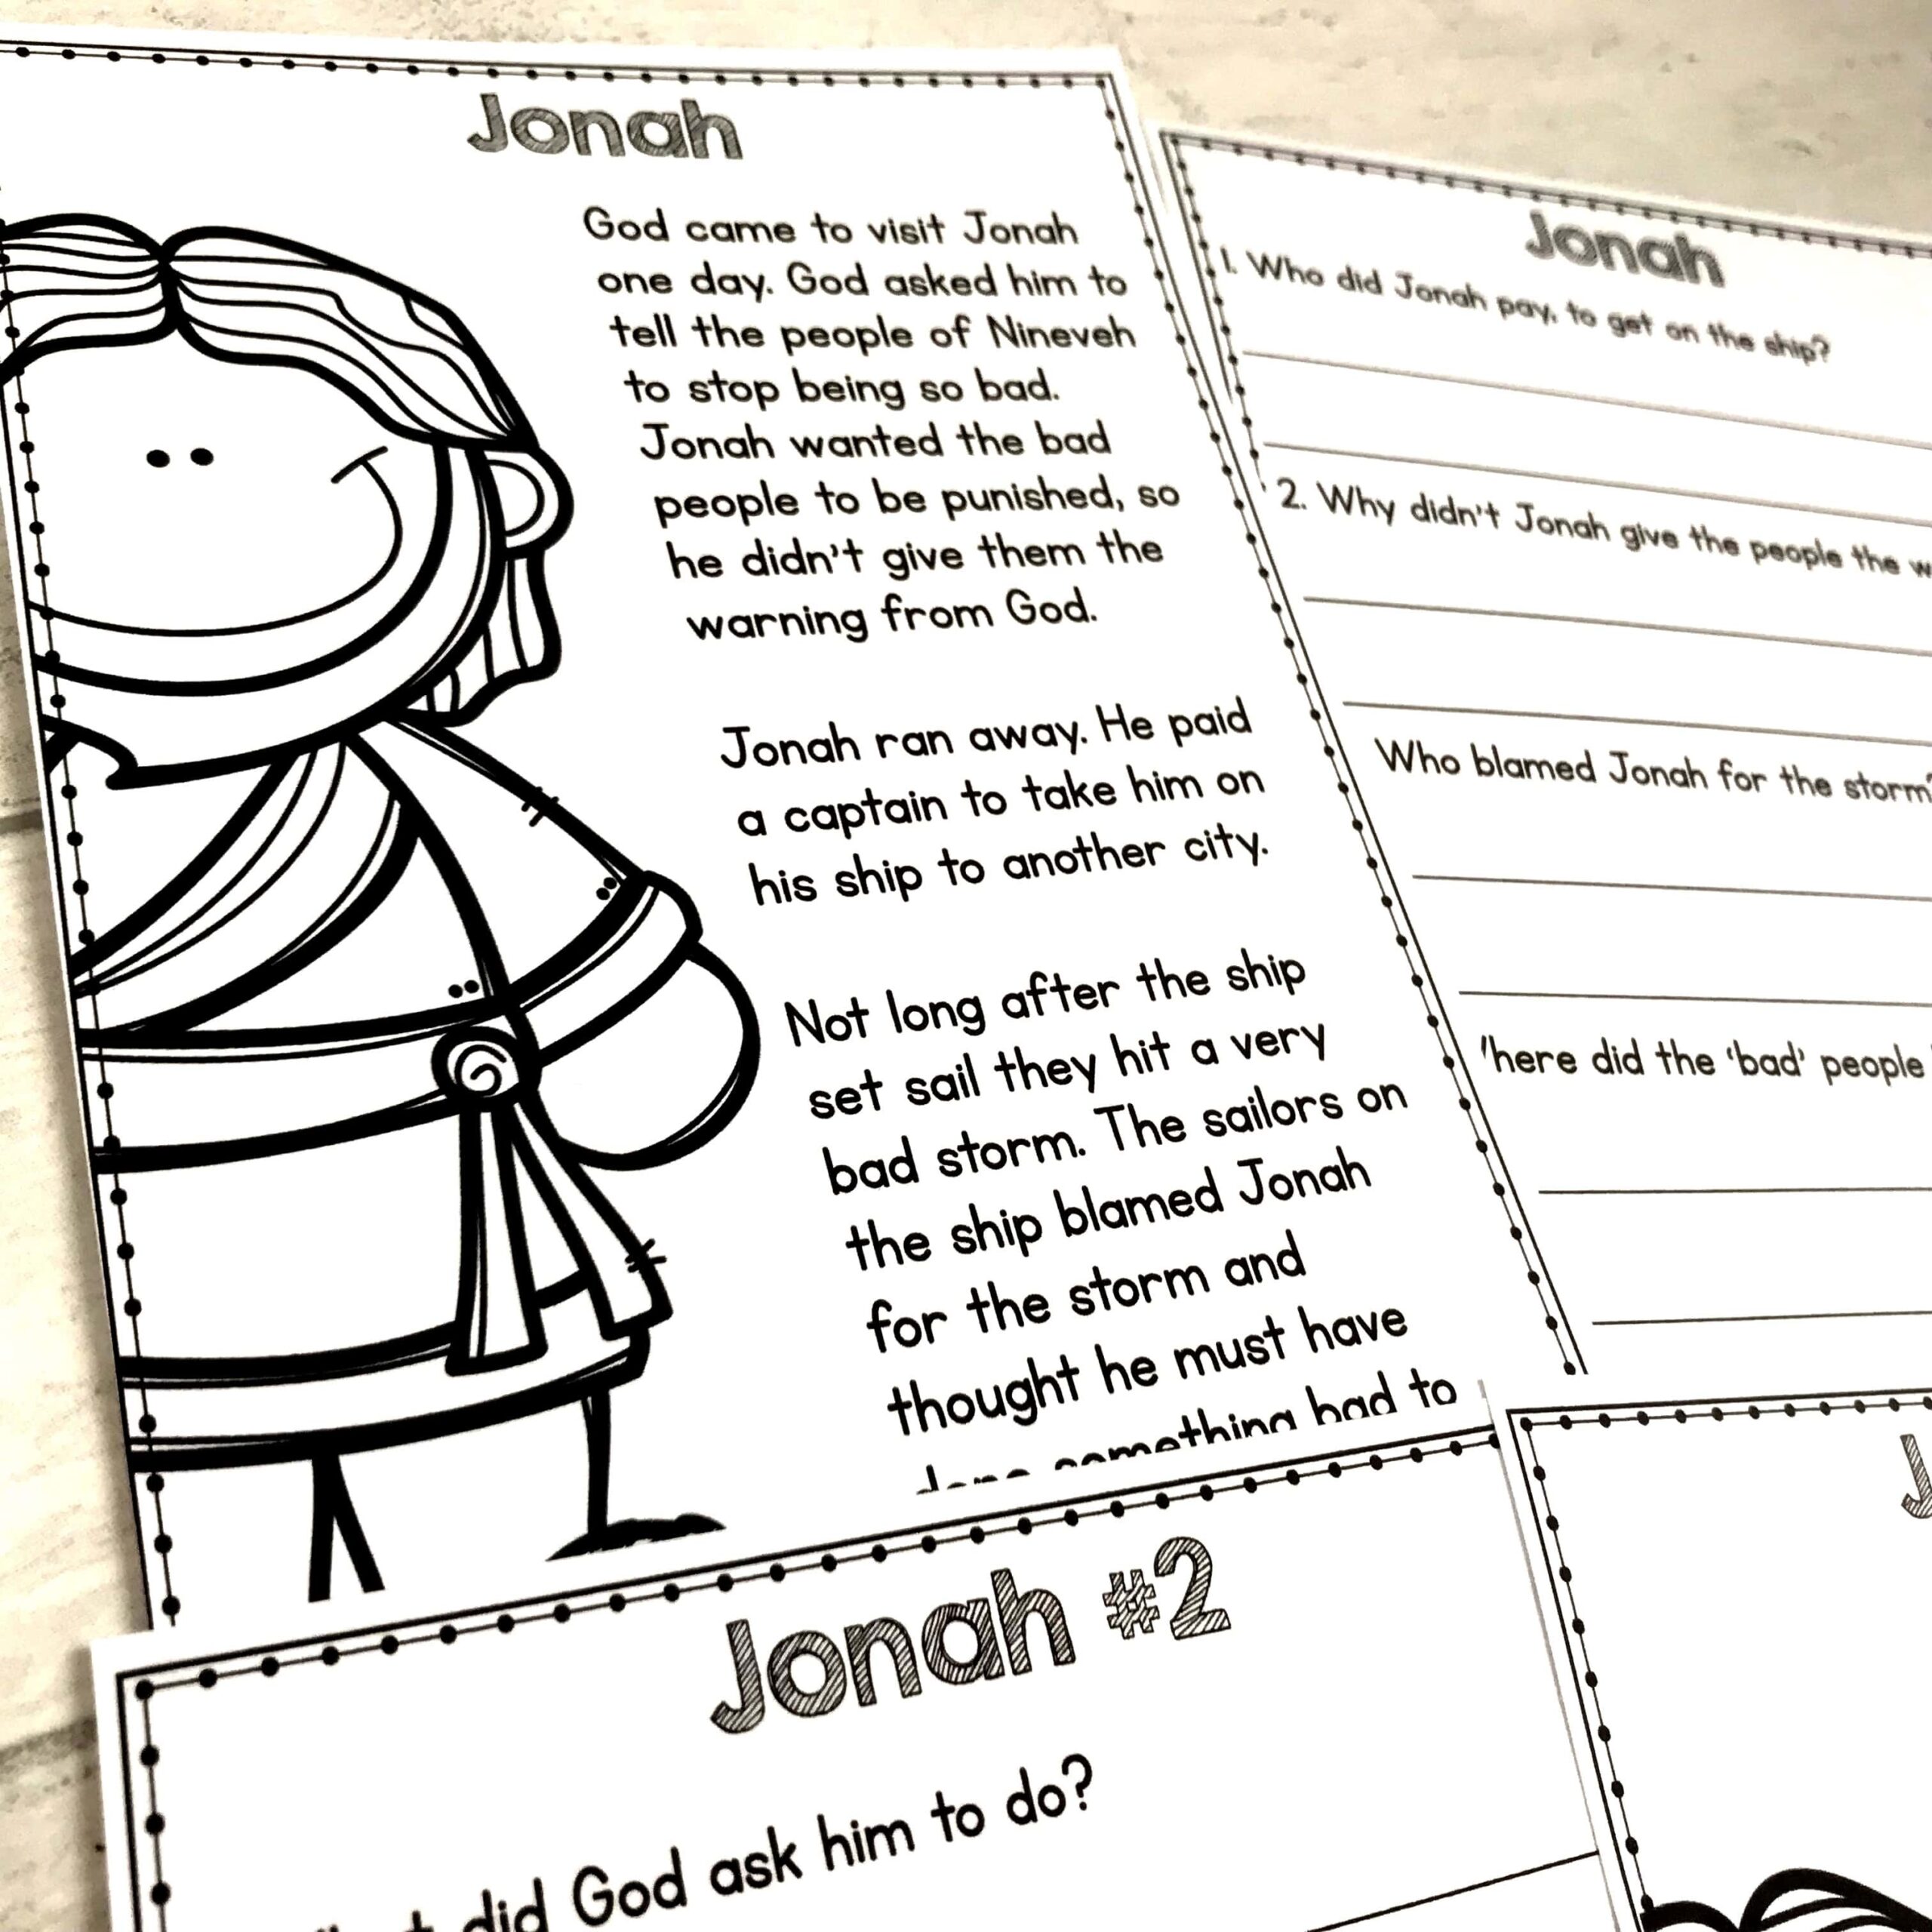 Jonah
God came to visit Jonah
one day. God asked him to
tell the people of Nineveh
to stop being so bad.
Jonah wanted the bad
people to be punished, so
he didn't give them the
warning from God.
Jonah ran away. He paid
a captain to take him on
his ship to another city.
Not long after the ship
set sail they hit a very
bad storm. The sailors on
the ship blamed Jonah
for the storm and
thought he must have
something bad to
Jonah
1. Who did Jonah pay, to get on the ship?
2. Why didn't Jonah give the people the
Who blamed Jonah for the storm
here did the 'bad' people
Jonah #2
did God ask him to do?
J